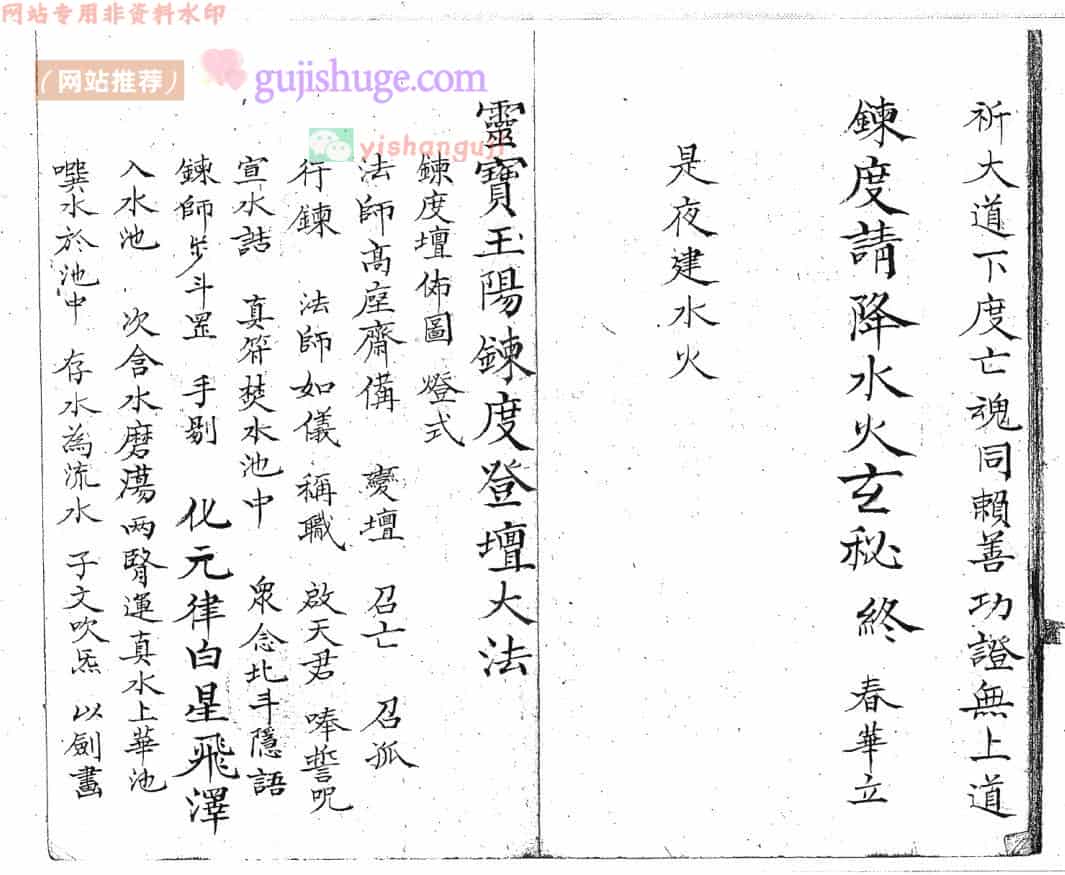 网站专用非资料水印
（网站推荐）
gujishuge.com
yishanguji
祈大道下度亡魂同賴善功證無上道
鍊度請降水火玄秘 終 春華立
是夜建水火
靈寶玉陽鍊度登壇大法
鍊度壇佈圖 燈式
法師高座齋備 變壇 召亡 召孤
行鍊 法師如儀稱職 啟天君 唪誓呪
宣水誥 真符焚水池中 衆念北斗隱語
鍊師步斗罡 手剔 化元律白星飛澤
入水池 次含水磨蕩两腎運真水上華池
噀水於池中 存水為流水 子文吹炁 以劍畫